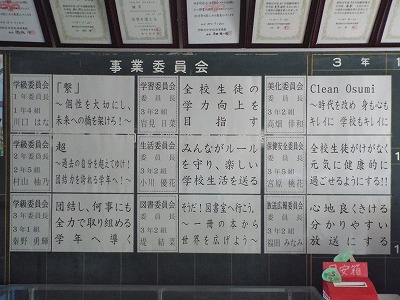 事業委員会
３年１
学級委員会
１年委員長
１年４組
川口 はな
「繋」
～個性を大切にし、
未来への橋を架けろ！～
学習委員会
委員長
３年２組
岩見 日菜
全校生徒の
学力向上を
目指す
美化委員会
委員長
３年２組
高畑 俳和
Clean Osumi
～時代を改め 身も心も
キレイに 学校もキレイに
学級委員会
２年委員長
２年５組
村山 柚乃
超
～過去の自分を超えてゆけ！
団結力を誇れる学年へ！～
生活委員会
委員長
３年２組
小川 優花
みんながルール
を守り、楽しい
学校生活を送る
保健安全委員会
委員長
３年５組
宮原 桃花
全校生徒がけがなく
元気に健康的に
過ごせるようにする!!
学級委員会
３年委員長
３年１組
秦野 勇輝
団結し、何事にも
全力で取り組める
学年へ導く
図書委員会
委員長
３年２組
堤 結菜
そうだ！図書室へ行こう。
～一冊の本から
世界を広げよう～
放送広報委員会
委員長
３年２組
福田 みなみ
心地良くきける
分かりやすい
放送にする
目安箱